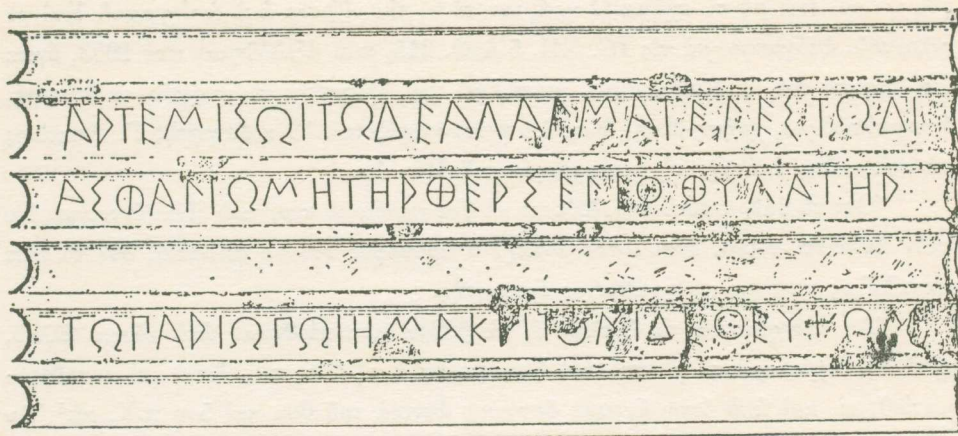 ΑΡΤΕΜΙΣΩΙΤΩΔΕΑΓΑΛΜΑΤΕΛΕΣΤΩΔΙ
ΑΣΦΑΛΙΩΜΗΤΗΡΘΕΡΣΕΛΕΟΘΥΓΑΤΗΡ
ΤΩΠΑΡΙΩΠΩΙΗΜΑΚΡΙΤΟΝΙΔΕΟΕΥΧΩΜ